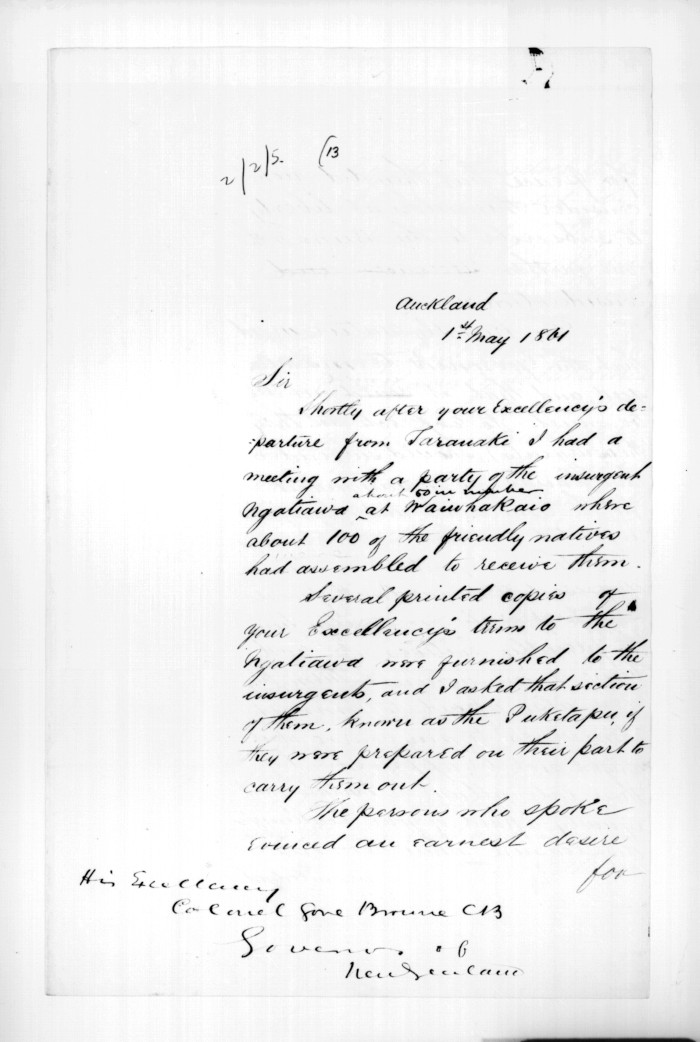 2/2/5. (13
Auckland
1st May 1861
Sir
Shortly after your Excellency's de=
=parture from Taranaki I had a
meeting with a party of the insurgent
about 50 in number
Ngatiawa at Waiwhakaio where
about 100 of the friendly natives
had assembled to receive them.
Several printed copies of
your Excellency's terms to the
Ngatiawa were furnished to the
insurgents, and I asked that section
of them, known as the Puketapu, if
they were prepared on their part to
carry them out.
The persons who spoke
evinced an earnest desire
for
His Excellency
Colonel Gore Browne CB
Governor of
New Zealand